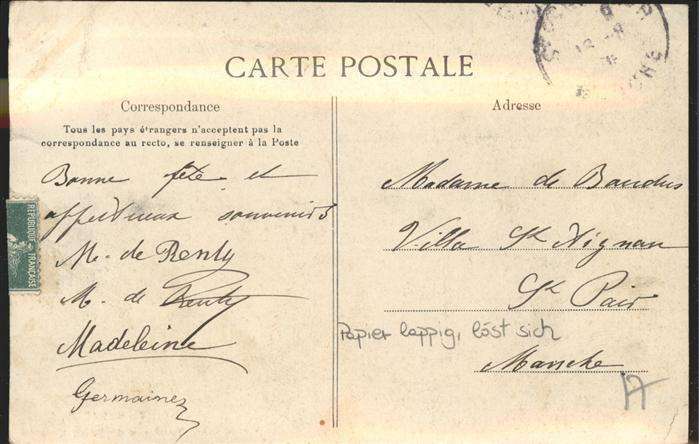 CARTE POSTALE
Correspondance
Tous les pays étrangers n'acceptent pas la
correspondance au recto, se renseigner à la Poste
Bonne fête et
affectueux souvenirs
M. de Renty
M. de Renty
Madeleine
Germaine
RÉPUBLIQUE FRANÇAISE
Adresse
Madame de Baudus
Villa St Aignan
St Pair
Papier lappig, löst sich
Manche